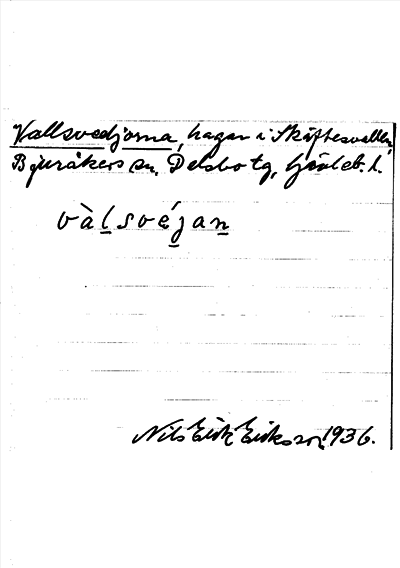 Vallsvedjorna, hagar i Skäftesvallen,
Bjuråkers sn, Delsbo tg, Gävleb. l.
vàlsvéjan
Nils Erik Eriksson 1936.